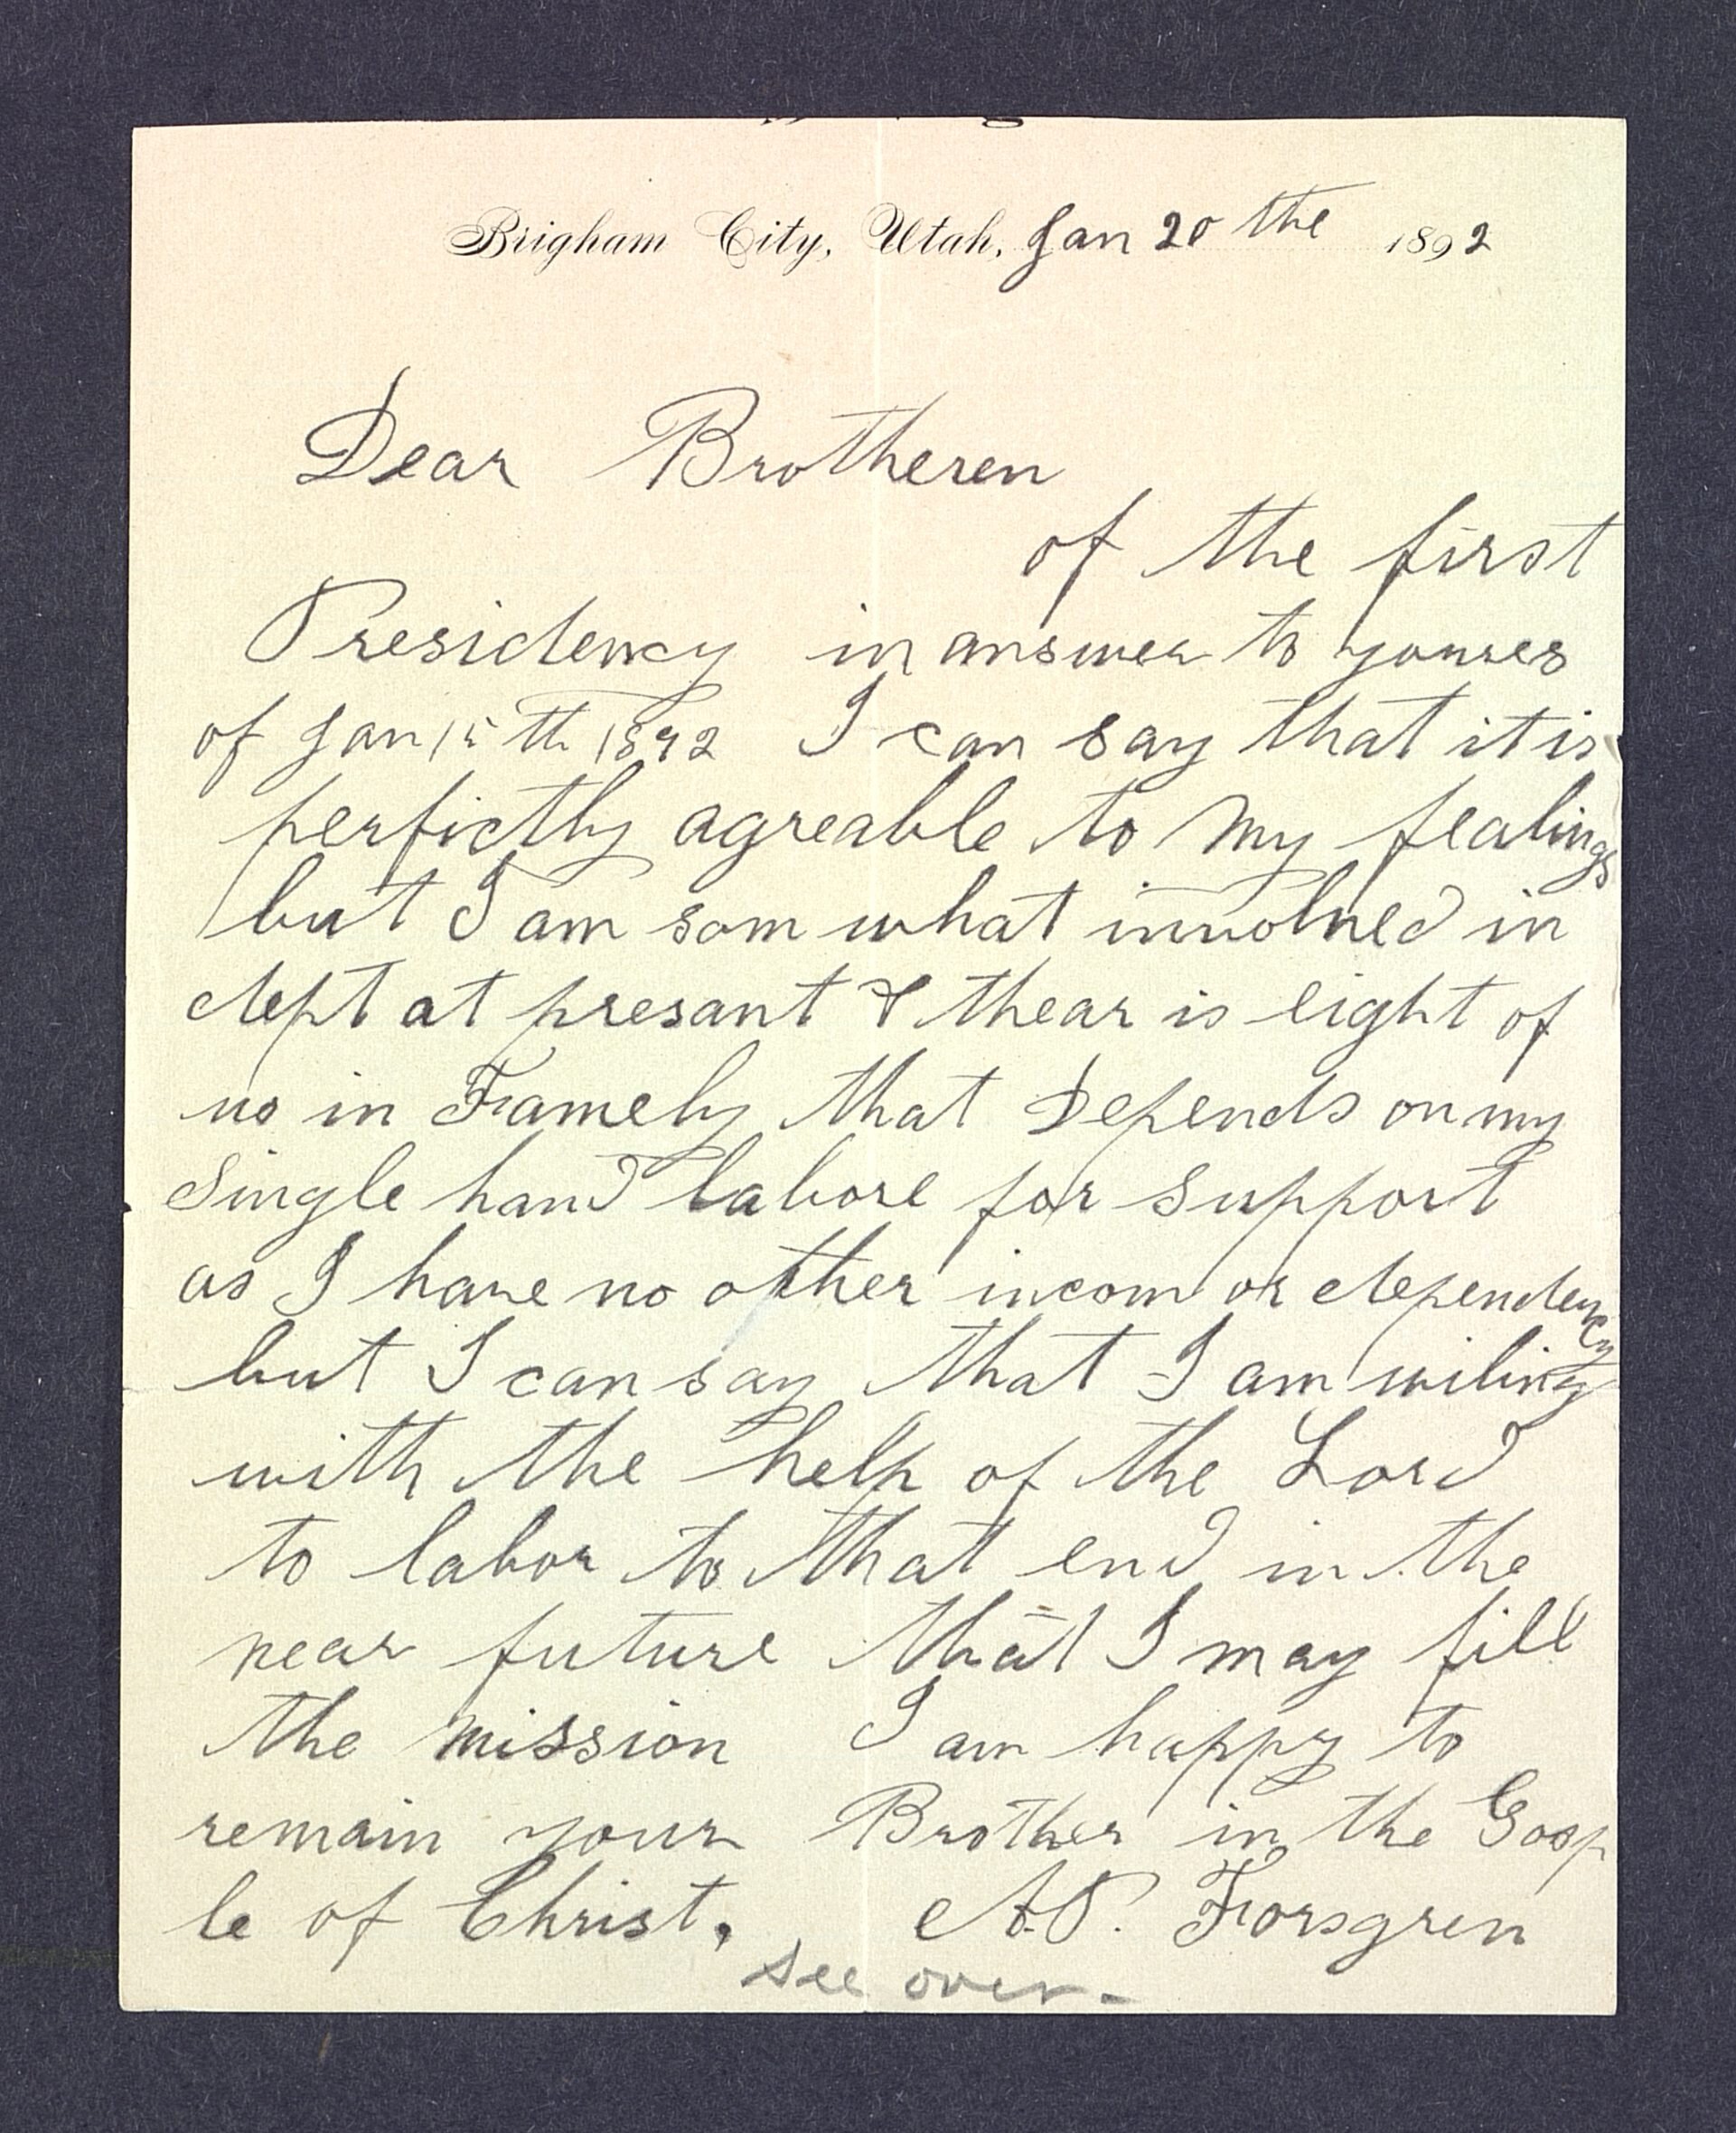 Brigham City, Utah, Jan 20 the 1892
Dear Brotheren
of the first
Presidency in answer to youres
of Jan 15 th 1892 I can say that it is
perfictly agreable to my fealings
but I am som what involved in
dept at presant & thear is eight of
us in Framely that Depends on my
Single hand labore for support
as I have no other incom or dependency
but I can say that I am wiling
with the help of the Lord
to labor to that end in the
near future that I may fill
the mission I am happy to
remain your Brother in the Gosp
le of Christ. A. P. Forsgren
see over-